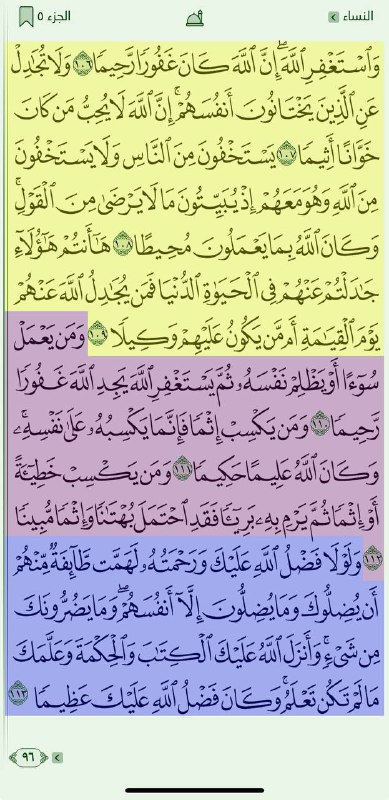 النساء الجزء ٥
وَٱسْتَغْفِرِ ٱللَّهَۖ إِنَّ ٱللَّهَ كَانَ غَفُورًا رَّحِيمًا ١٠٦ وَلَا تُجَٰدِلْ
عَنِ ٱلَّذِينَ يَخْتَانُونَ أَنفُسَهُمْۚ إِنَّ ٱللَّهَ لَا يُحِبُّ مَن كَانَ
خَوَّانًا أَثِيمًا ١٠٧ يَسْتَخْفُونَ مِنَ ٱلنَّاسِ وَلَا يَسْتَخْفُونَ
مِنَ ٱللَّهِ وَهُوَ مَعَهُمْ إِذْ يُبَيِّتُونَ مَا لَا يَرْضَىٰ مِنَ ٱلْقَوْلِۚ
وَكَانَ ٱللَّهُ بِمَا يَعْمَلُونَ مُحِيطًا ١٠٨ هَٰٓأَنتُمْ هَٰٓؤُلَآءِ
جَٰدَلْتُمْ عَنْهُمْ فِى ٱلْحَيَوٰةِ ٱلدُّنْيَا فَمَن يُجَٰدِلُ ٱللَّهَ عَنْهُمْ
يَوْمَ ٱلْقِيَٰمَةِ أَم مَّن يَكُونُ عَلَيْهِمْ وَكِيلًا ١٠٩ وَمَن يَعْمَلْ
سُوٓءًا أَوْ يَظْلِمْ نَفْسَهُۥ ثُمَّ يَسْتَغْفِرِ ٱللَّهَ يَجِدِ ٱللَّهَ غَفُورًا
رَّحِيمًا ١١٠ وَمَن يَكْسِبْ إِثْمًا فَإِنَّمَا يَكْسِبُهُۥ عَلَىٰ نَفْسِهِۦۚ
وَكَانَ ٱللَّهُ عَلِيمًا حَكِيمًا ١١١ وَمَن يَكْسِبْ خَطِيٓـَٔةً
أَوْ إِثْمًا ثُمَّ يَرْمِ بِهِۦ بَرِيٓـًٔا فَقَدِ ٱحْتَمَلَ بُهْتَٰنًا وَإِثْمًا مُّبِينًا
١١٢ وَلَوْلَا فَضْلُ ٱللَّهِ عَلَيْكَ وَرَحْمَتُهُۥ لَهَمَّت طَّآئِفَةٌ مِّنْهُمْ
أَن يُضِلُّوكَ وَمَا يُضِلُّونَ إِلَّآ أَنفُسَهُمْۖ وَمَا يَضُرُّونَكَ
مِن شَىْءٍۚ وَأَنزَلَ ٱللَّهُ عَلَيْكَ ٱلْكِتَٰبَ وَٱلْحِكْمَةَ وَعَلَّمَكَ
مَا لَمْ تَكُن تَعْلَمُۚ وَكَانَ فَضْلُ ٱللَّهِ عَلَيْكَ عَظِيمًا ١١٣
٩٦